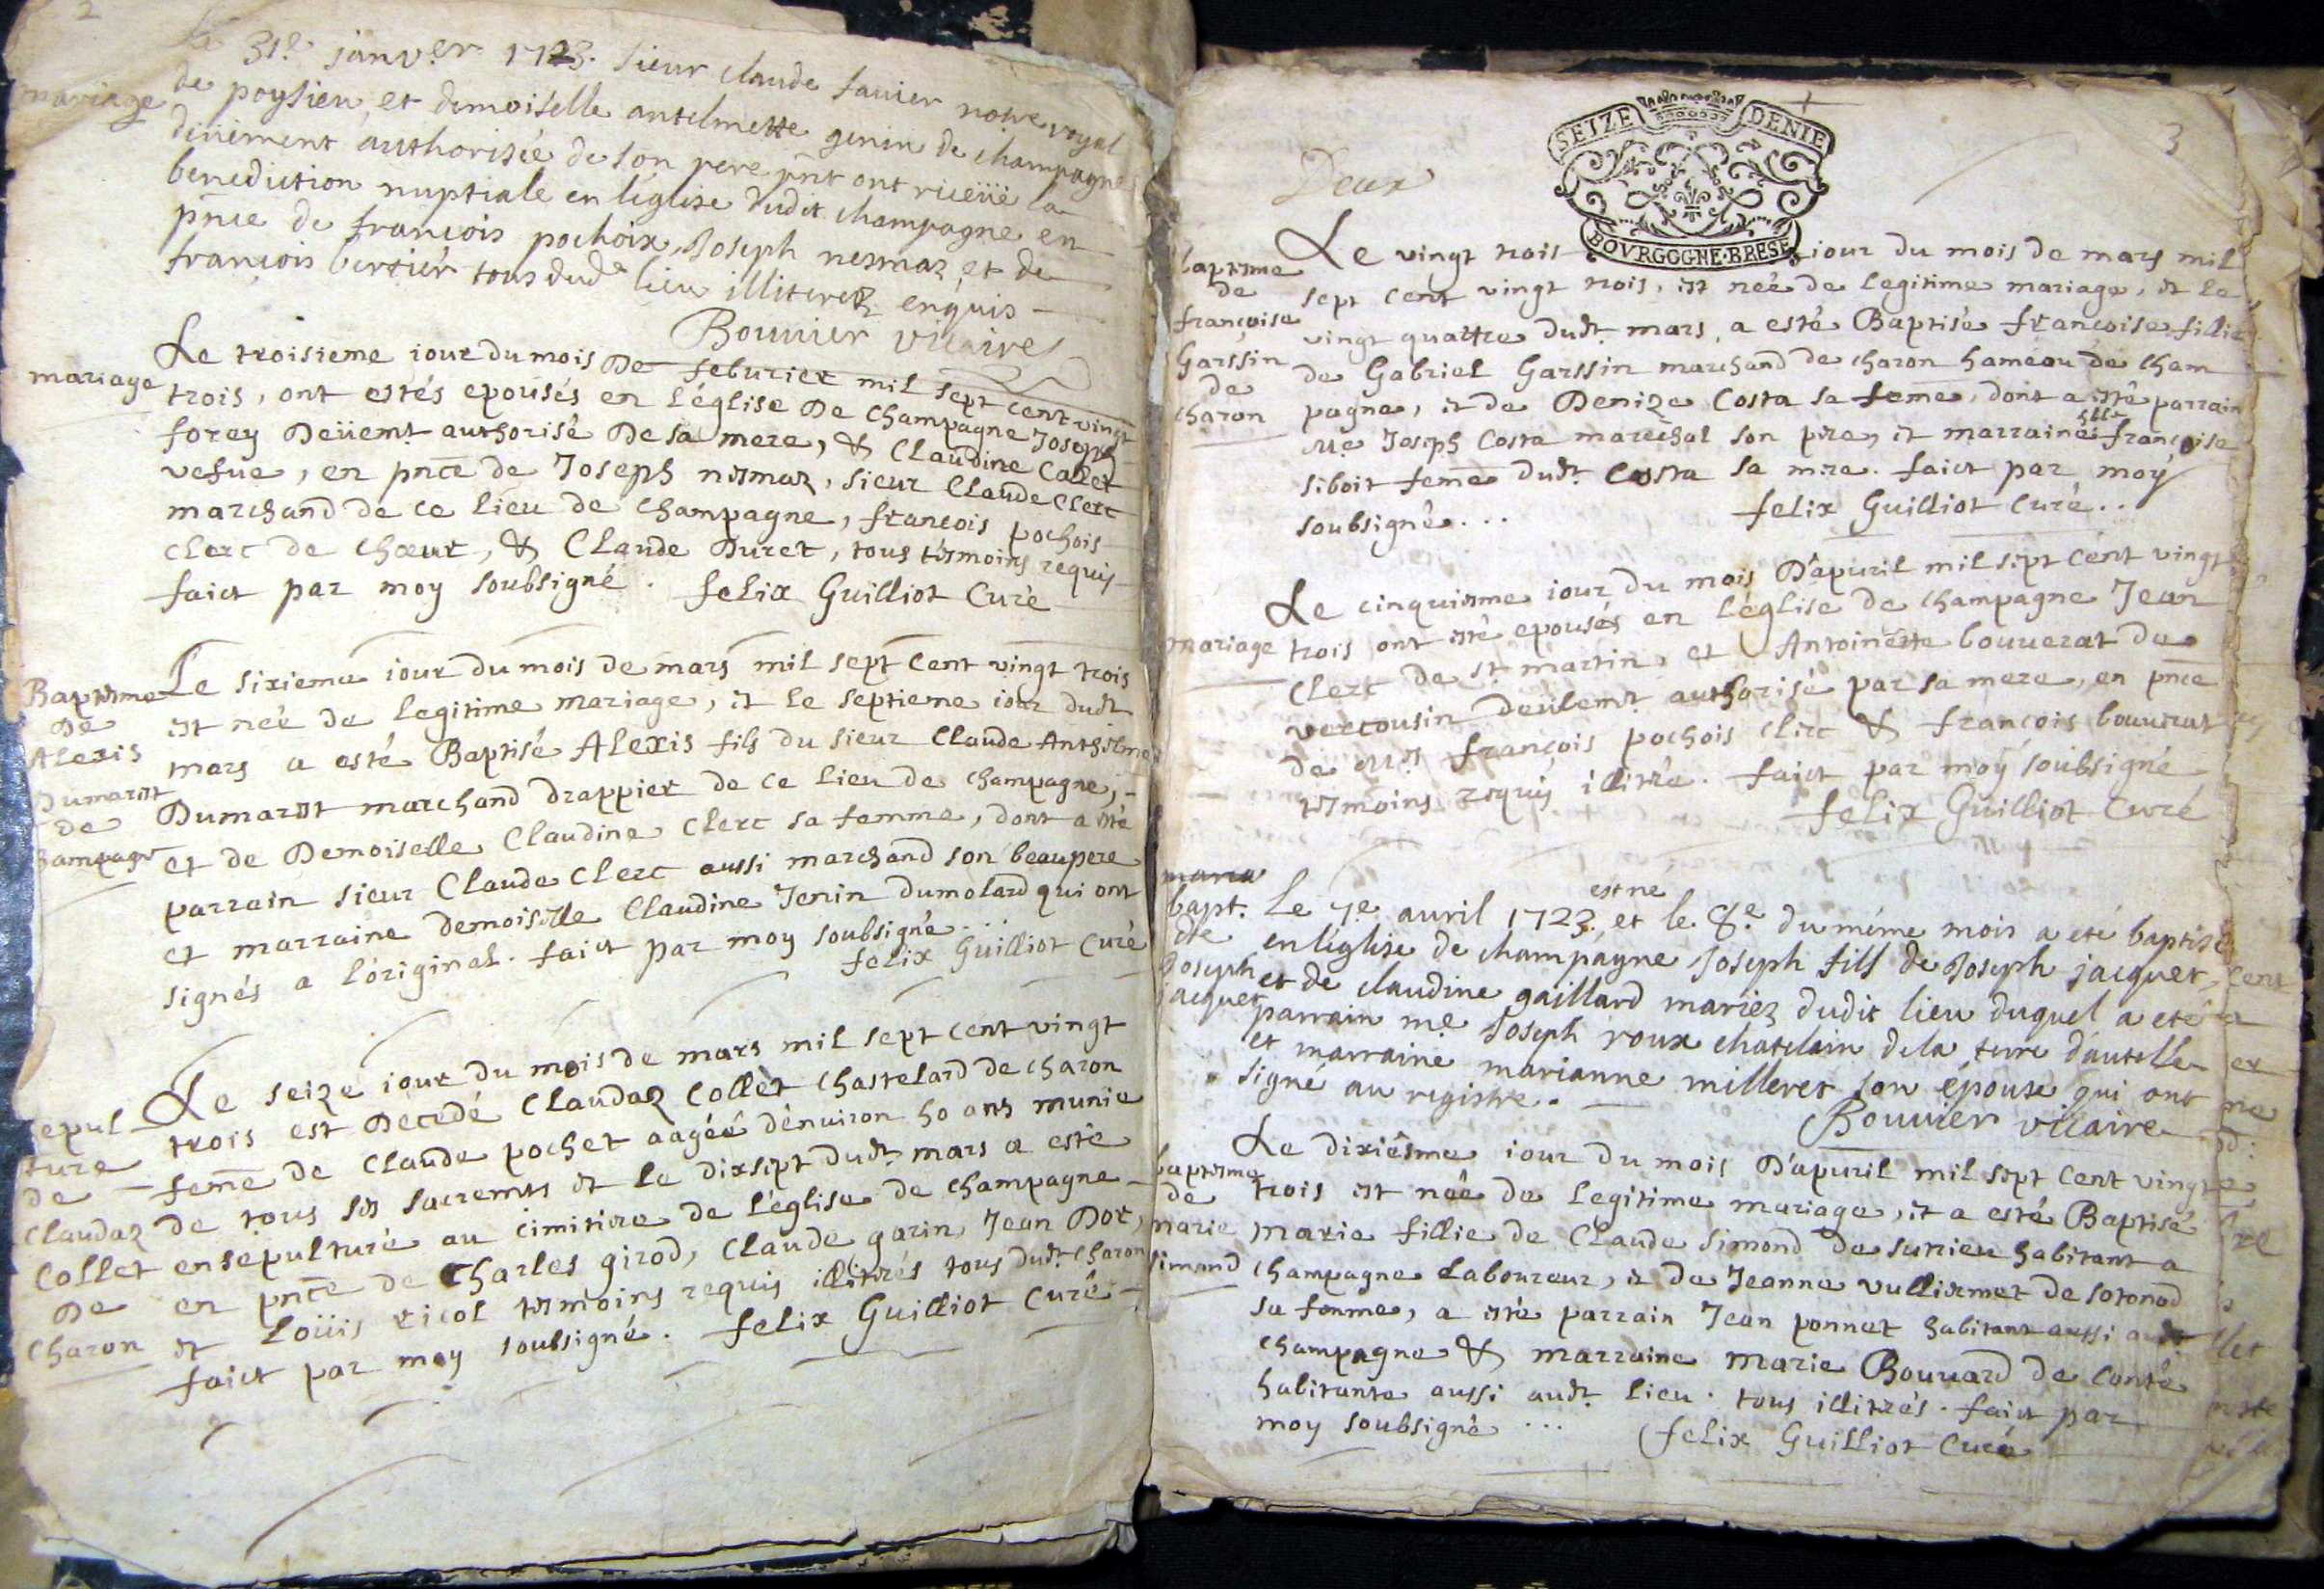 2
Le 31e janver 1723. sieur claude sauier noire royal
mariage
de poysieu, et demoiselle antelmette genin de champagne
deüement authorisée de son pere pñt ont riceüe la
benediction nuptiale en léglise dudit champagne en
pñce de francois pochoix, Joseph nesmaz et de
francois bertiér tous dudt lieu illiterez enquis
Bouuier vicaire
mariage
Le troisieme iour du mois De feburier mil sept cent vingt
trois, ont estés epousés en l'église De Champagne Joseph
forey Deüemt authorisé De sa mere, & Claudine Callet
vefue, en pnce de Joseph nesmaz, sieur Claude Clerc
marchand de ce lieu de Champagne, francois pochois
Clerc de Chœur, & Claude Duret, tous tesmoins requis
faict par moy soubsigné. felix Guilliot Curé
Baptesme
De
Alexis
Dumarest
de
Champagne
Le sixieme iour du mois de mars mil sept Cent vingt trois
est née de legitime mariage, et le septieme iour dudt
mars a esté Baptisé Alexis fils du sieur Claude Anthelme
Dumarest marchand drappier de ce lieu de champagne,
et de Demoiselle Claudine Clerc sa femme, dont a esté
parrain sieur Claude Clerc aussi marchand son beaupere
et marraine demoiselle Claudine Jenin dumolard qui ont
signés a lóriginal. faict par moy soubsigné...
felix Guilliot Curé
sepul
ture
de
Claudaz
Collet
De
Charon
Le seize iour du mois de mars mil sept cent vingt
trois est Decedé Claudaz Collet Chastelard de Charon
feme de Claude pochet aagéé dénuiron 40 ans munie
de tous ses sacremts et le dixsept dudt mars a esté
ensepulturé au cimitiere de l'église de Champagne
en pnce de Charles girod, Claude garin, Jean Dor,
et Loüis ricol tesmoins requis illitrés tous dudt Charon
faict par moy soubsigné. felix Guilliot Curé
3
SEIZE DENIE
BOVRGOGNE·BRESE
Deux
baptesme
de
francoise
Garssin
de
Charon
Le vingt trois iour du mois de mars mil
sept cent vingt trois, est née de legitime mariage, et le
vingt quattre dudt mars, a esté Baptisé francoise fillie
de Gabriel Garssin marchand de charon hameau de Cham
pagne, et de Denize Costa sa feme, dont a esté parrain
Me Joseph Costa marechal son pere, et marraine francoise
siboit feme dudt Costa sa mere. faict par moy
soubsigné... felix Guilliot Curé..
mariage
Le cinquiesme iour du mois D'apuril mil sept Cent vingt
trois ont esté epousés en l'église de Champagne Jean
Clerc de st martin, et Antoinette bouuerat de
vercousin deüemt authorisé par sa mere, en pnce
de Mre francois pochois Clerc & francois bouuerat
tesmoins requis illitrés. faict par moy soubsigné
felix Guilliot Curé
maria
bapt.
de
Joseph
jacquet
est né
Le 7e auril 1723., et le 8e du méme mois a eté baptisé
en léglise de champagne Joseph fils de Joseph jacquet,
et de claudine gaillard mariez dudit lieu duquel a eté
parrain me Joseph roux chatelain dela terre dàutelle
et marraine marianne milleret son épouse qui ont
signé au registre.
Bouuier vicaire
baptesme
de
marie
simond
Le dixiésme iour du mois D'apuril mil sept cent vingt
trois est née de legitime mariage, et a esté Baptisé
marie fillie de Claude simond de surrieu habitant a
champagne laboureur, et de Jeanne vulliermet de sotonod
sa femme, a esté parrain Jean ponnet habitant aussi audt
champagne & marraine marie Bouuard de Conté
habitante aussi audt lieu. tous illitrés. faict par
moy soubsigné ... felix Guilliot Curé